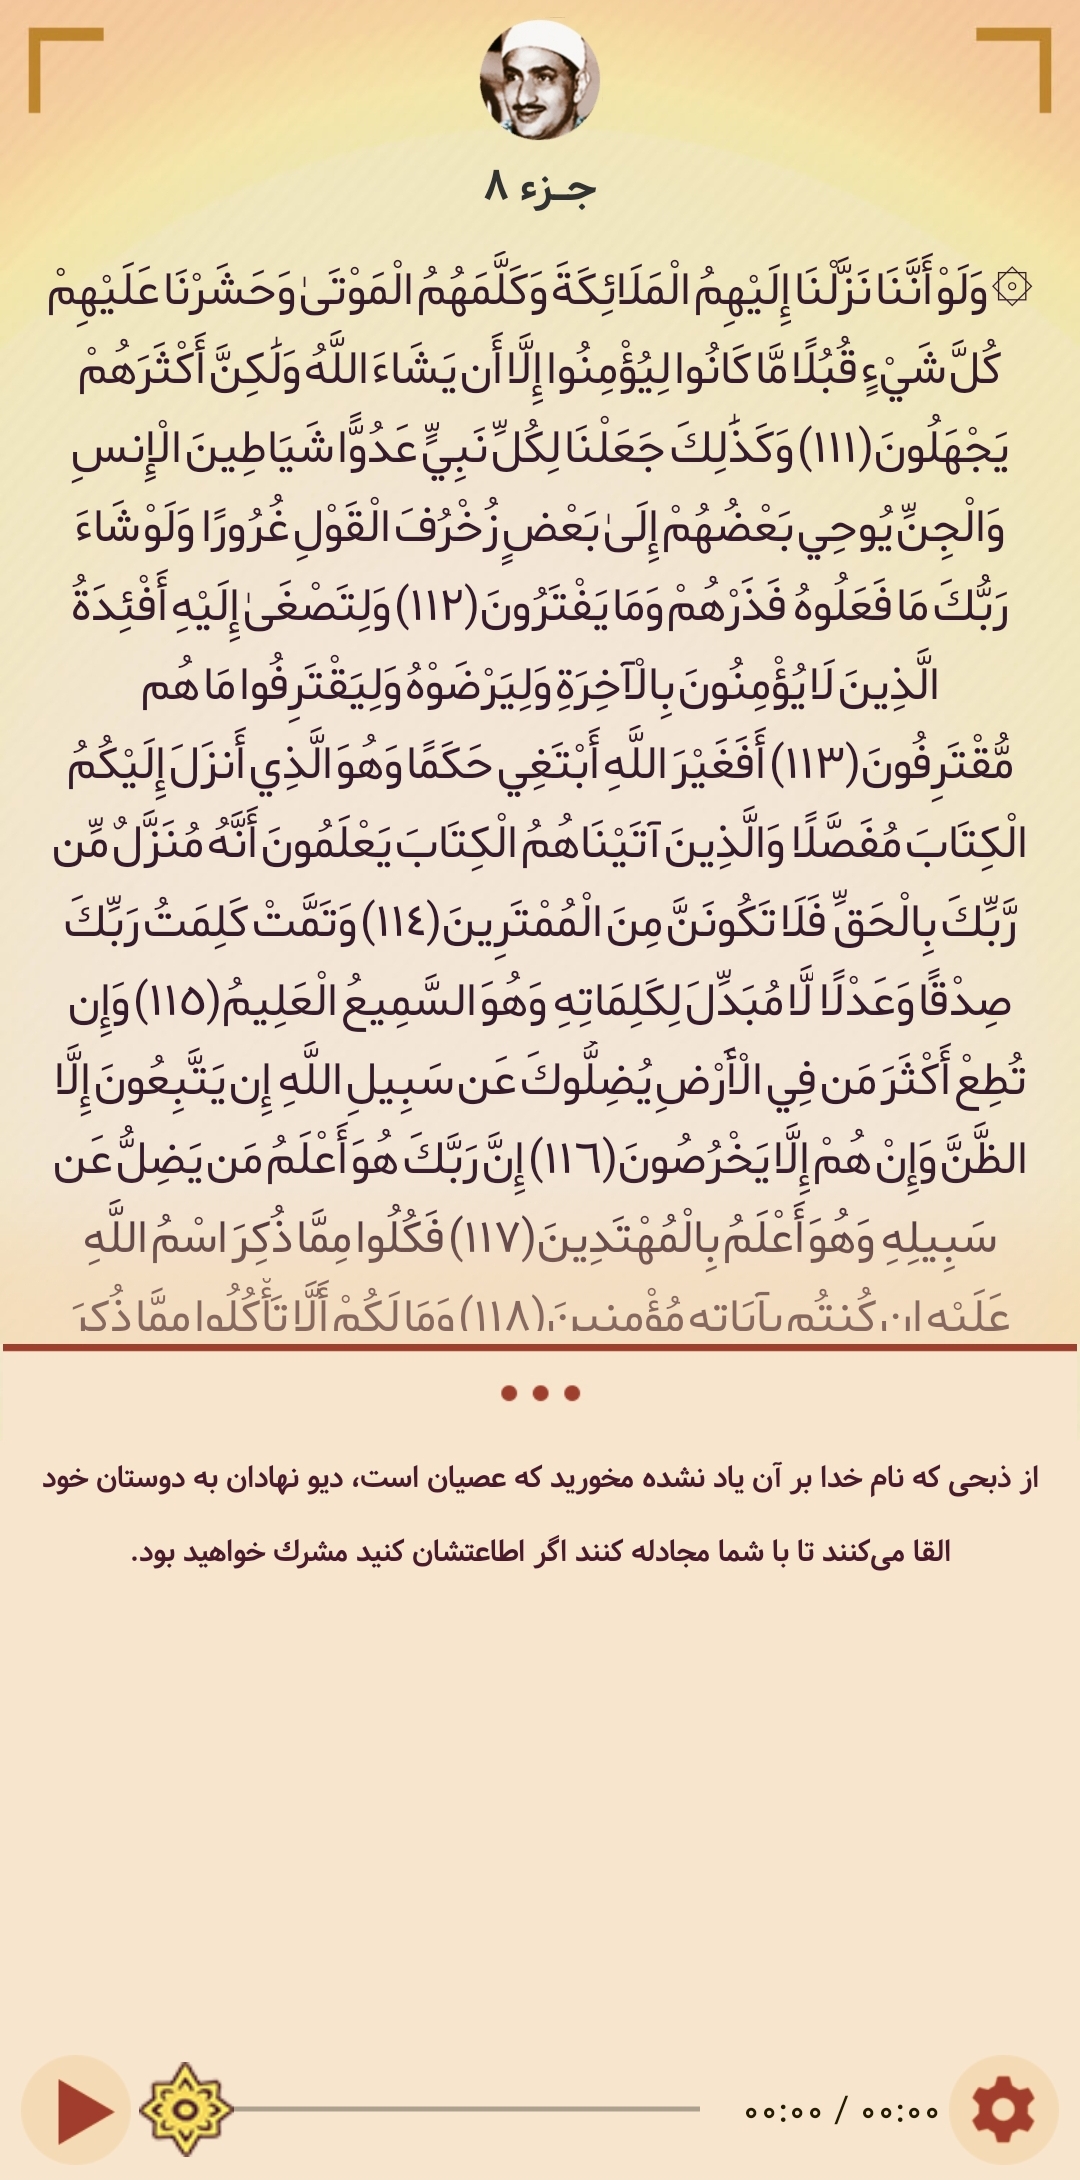 جـزء ٨
۞ وَلَوْ أَنَّنَا نَزَّلْنَا إِلَيْهِمُ الْمَلَائِكَةَ وَكَلَّمَهُمُ الْمَوْتَىٰ وَحَشَرْنَا عَلَيْهِمْ
كُلَّ شَيْءٍ قُبُلًا مَّا كَانُوا لِيُؤْمِنُوا إِلَّا أَن يَشَاءَ اللَّهُ وَلَٰكِنَّ أَكْثَرَهُمْ
يَجْهَلُونَ (١١١) وَكَذَٰلِكَ جَعَلْنَا لِكُلِّ نَبِيٍّ عَدُوًّا شَيَاطِينَ الْإِنسِ
وَالْجِنِّ يُوحِي بَعْضُهُمْ إِلَىٰ بَعْضٍ زُخْرُفَ الْقَوْلِ غُرُورًا وَلَوْ شَاءَ
رَبُّكَ مَا فَعَلُوهُ فَذَرْهُمْ وَمَا يَفْتَرُونَ (١١٢) وَلِتَصْغَىٰ إِلَيْهِ أَفْئِدَةُ
الَّذِينَ لَا يُؤْمِنُونَ بِالْآخِرَةِ وَلِيَرْضَوْهُ وَلِيَقْتَرِفُوا مَا هُم
مُّقْتَرِفُونَ (١١٣) أَفَغَيْرَ اللَّهِ أَبْتَغِي حَكَمًا وَهُوَ الَّذِي أَنزَلَ إِلَيْكُمُ
الْكِتَابَ مُفَصَّلًا وَالَّذِينَ آتَيْنَاهُمُ الْكِتَابَ يَعْلَمُونَ أَنَّهُ مُنَزَّلٌ مِّن
رَّبِّكَ بِالْحَقِّ فَلَا تَكُونَنَّ مِنَ الْمُمْتَرِينَ (١١٤) وَتَمَّتْ كَلِمَتُ رَبِّكَ
صِدْقًا وَعَدْلًا لَّا مُبَدِّلَ لِكَلِمَاتِهِ وَهُوَ السَّمِيعُ الْعَلِيمُ (١١٥) وَإِن
تُطِعْ أَكْثَرَ مَن فِي الْأَرْضِ يُضِلُّوكَ عَن سَبِيلِ اللَّهِ إِن يَتَّبِعُونَ إِلَّا
الظَّنَّ وَإِنْ هُمْ إِلَّا يَخْرُصُونَ (١١٦) إِنَّ رَبَّكَ هُوَ أَعْلَمُ مَن يَضِلُّ عَن
سَبِيلِهِ وَهُوَ أَعْلَمُ بِالْمُهْتَدِينَ (١١٧) فَكُلُوا مِمَّا ذُكِرَ اسْمُ اللَّهِ
عَلَيْهِ إِن كُنتُم بِآيَاتِهِ مُؤْمِنِينَ (١١٨) وَمَا لَكُمْ أَلَّا تَأْكُلُوا مِمَّا ذُكِرَ
از ذبحی که نام خدا بر آن یاد نشده مخورید که عصیان است، دیو نهادان به دوستان خود
القا می‌کنند تا با شما مجادله کنند اگر اطاعتشان کنید مشرك خواهید بود.
۰۰:۰۰ / ۰۰:۰۰